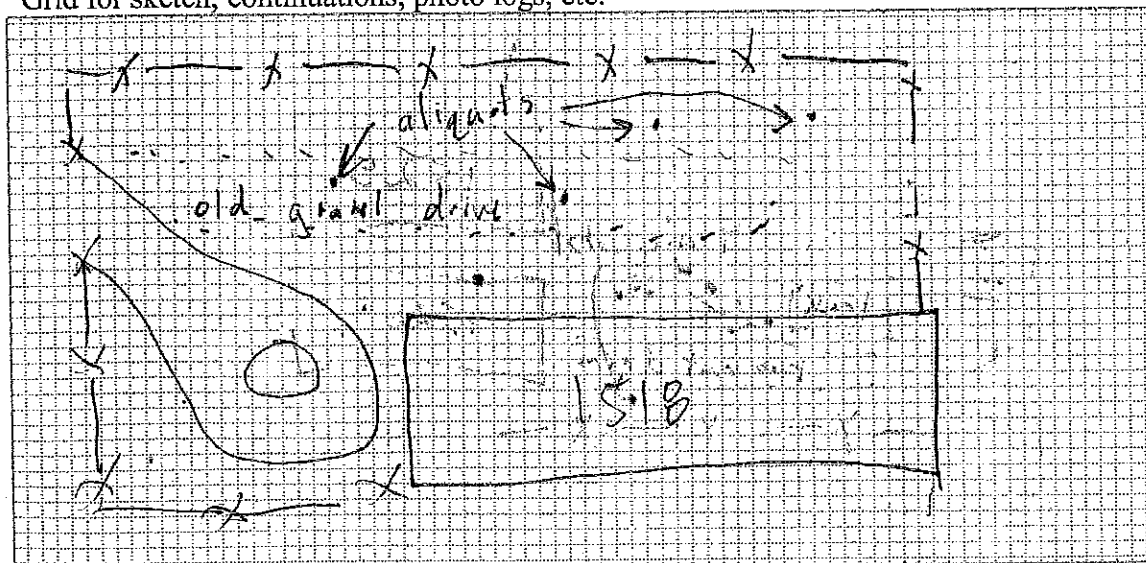 Grid for sketch, continuations, photo logs, etc.
aliquots
old gravel drive
1518